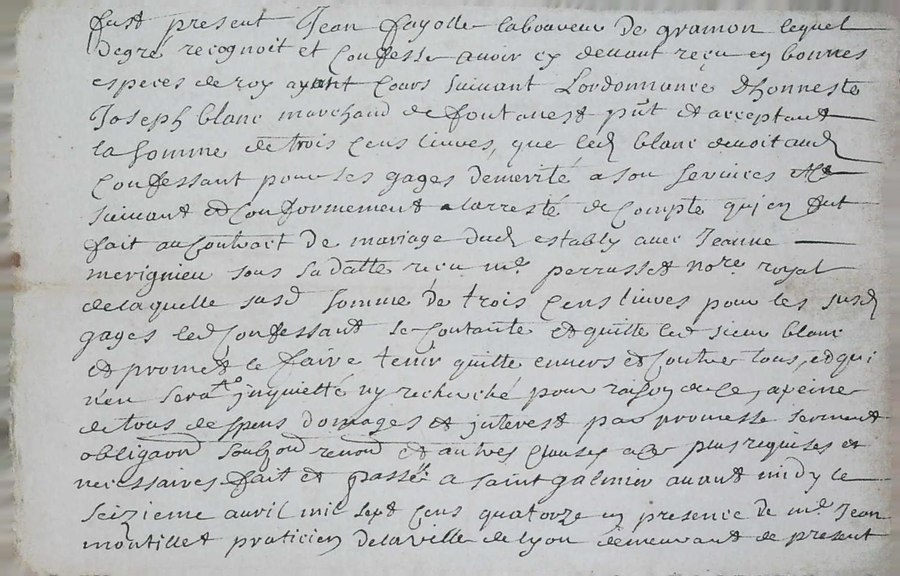 fust present Jean fayolle laboureur de gramon lequel
degre recognoit et Confesse avoir cy devant reçu en bonnes
especes de roy ayant Cours suivant Lordonnance dhonneste
Joseph blanc marchand de fontanest pnt et acceptant
la somme de trois Cens livres, que led blanc devoit aud
Confessant pour les gages demerité a son services
suivant et Conformement a larresté de Compte qui en fut
fait au Contract de mariage dud estably avec Jeanne
merignieu sous sa datte reçu me perrusset nore royal
de laquelle susd somme de trois Cens livres pour les susd
gages led Confessant se Contante et quitte led sieur blanc
et promet le faire tenir quitte envers et Contre tous, et qui
nen sera inquietté ny recherché pour raison de ce a peine
de tous despens domages et interest par promesse serment
obligaon soubzon renoon et autres Clauses a ce plus requises et
necessaires fait et passé a saint galmier avant midy le
seizieme avril mil sept cens quatorze en presence de me Jean
montillet praticien de la ville de lyon demeurant de present